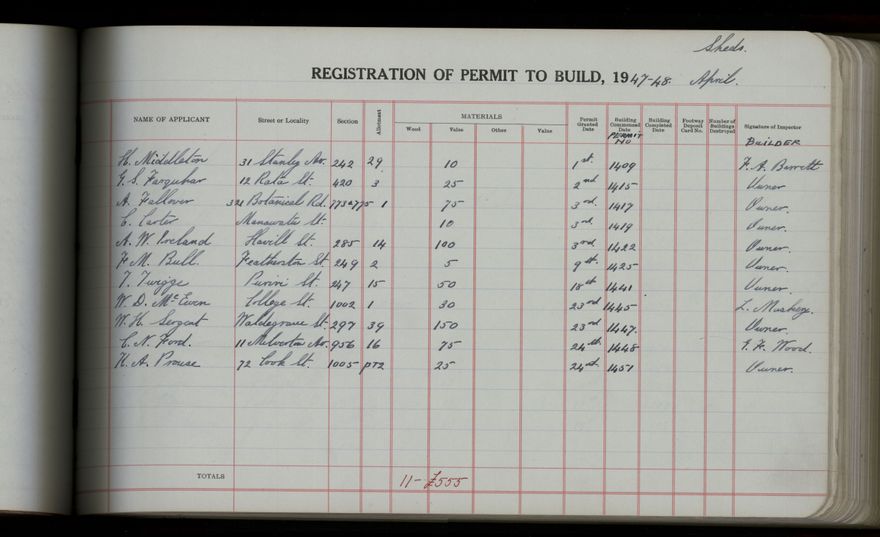 Sheds.
REGISTRATION OF PERMIT TO BUILD, 1947-48. April.
NAME OF APPLICANT Street or Locality Section Allotment MATERIALS Wood Value Other Value Permit Granted Date Building Commenced Date PERMIT NO Building Completed Date Footway Deposit Card No. Number of Buildings Destroyed Signature of Inspector BUILDER
H. Middleton 31 Stanley Av. 242 29 10 1st. 1409 F. A. Barrett
G. S. Farquhar 12 Rata St. 420 3 25 2nd 1415 Owner
A. Fallover 321 Botanical Rd. 773&775 1 75 3rd. 1417 Owner.
C. Carter Manawatu St. 10 3rd. 1419 Owner.
A. W. Ireland Havill St. 285 14 100 3rd. 1422 Owner.
F. M. Bull. Featherston St. 249 2 5 9th. 1425 Owner.
T. Twigge Puriri St. 247 15 50 18th 1441 Owner.
W. D. McEwen College St. 1002 1 30 23rd 1445 L.
W. H. Sergent Waldegrave St. 297 39 150 23rd 1447. Owner.
C. N. Ford. 11 Milverton Av. 956 16 75 24th. 1448 G. F. Wood.
H. A. Prouse 72 Cook St. 1005 PT2 25 24st. 1451 Owner.
TOTALS 11- £555